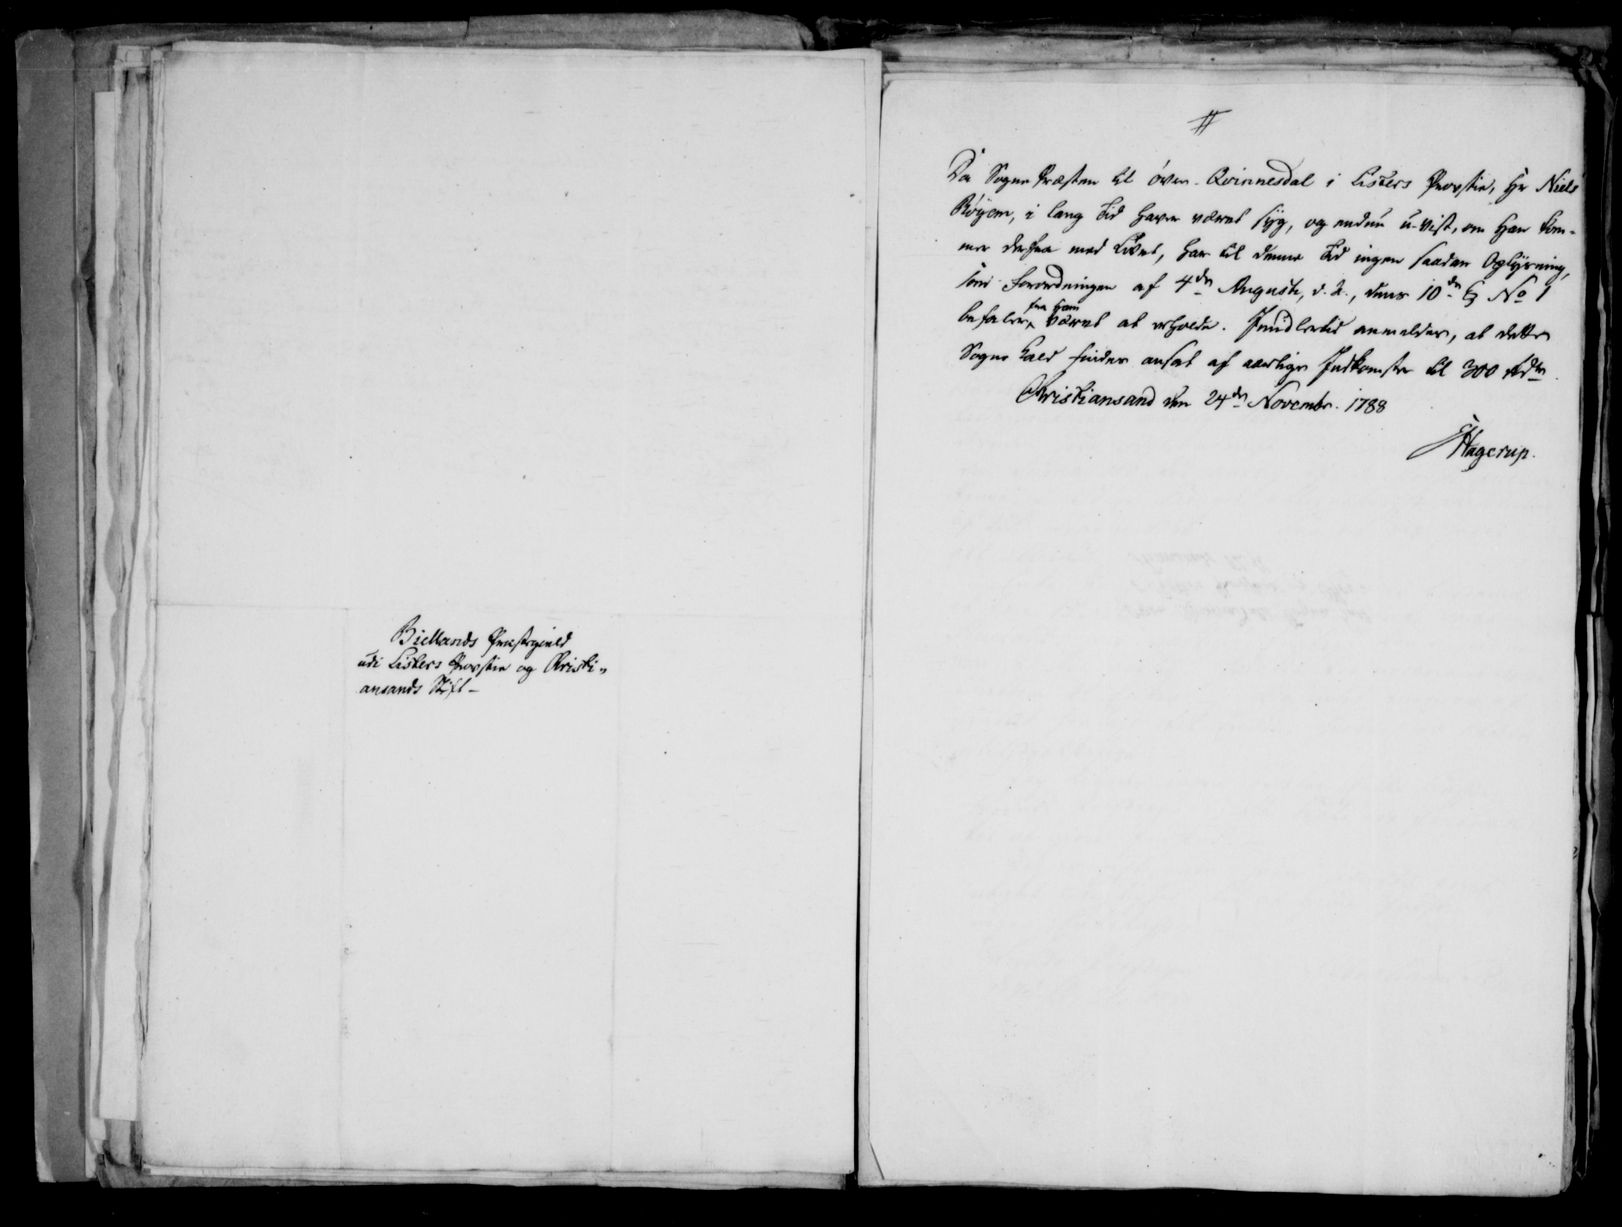 Biellands Præstegield
udi Listers Provstie og Christi-
ansands Stift -
Da Sogne Præsten til Øvre-Qvinnesdal i Listers Provstie, Hr Niels
Bøyom, i lang Tid haver været syg, og endnu u-vist, om Han kom-
mer derfra med Livet, har til denne Tid ingen saadan Oplysning,
som Forordningen af 4de Augusti, d. A., dens 10de § No 1
befaler, fra ham været at erholde. Imidlertid anmeldes, at dette
Sogne Kald findes ansat af aarlige Indkomster til 300 rdr.
Christiansand den 24de Novembr. 1788
Hagerup.